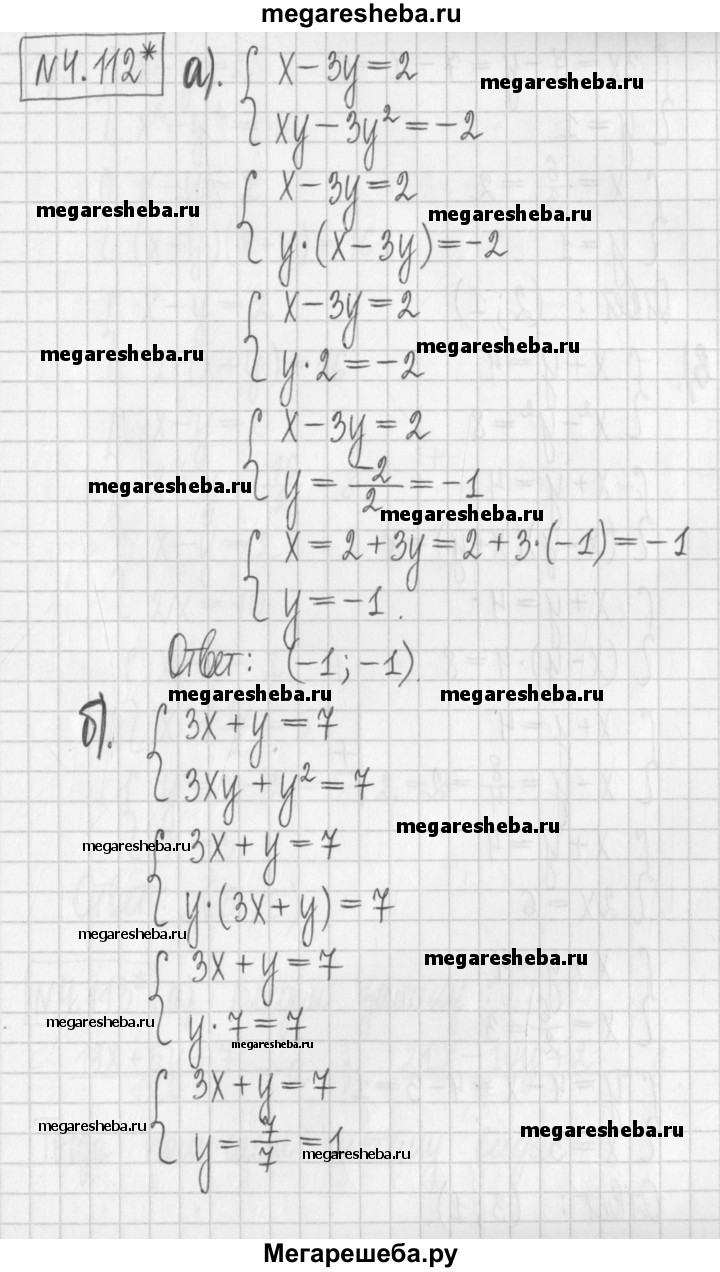 megaresheba.ru
N4.112* а). { x − 3y = 2
xy − 3y² = −2
megaresheba.ru
{ x − 3y = 2
megaresheba.ru megaresheba.ru
y·(x − 3y) = −2
{ x − 3y = 2
megaresheba.ru megaresheba.ru
y·2 = −2
{ x − 3y = 2
megaresheba.ru
y = −2/2 = −1
megaresheba.ru
{ x = 2 + 3y = 2 + 3·(−1) = −1
y = −1.
Ответ: (−1; −1)
megaresheba.ru megaresheba.ru
б). { 3x + y = 7
3xy + y² = 7
megaresheba.ru
megaresheba.ru { 3x + y = 7
y·(3x + y) = 7
megaresheba.ru
{ 3x + y = 7
megaresheba.ru
megaresheba.ru y·7 = 7
megaresheba.ru
{ 3x + y = 7
megaresheba.ru megaresheba.ru
y = 7/7 = 1
megaresheba.ru
Мегарешеба.ру